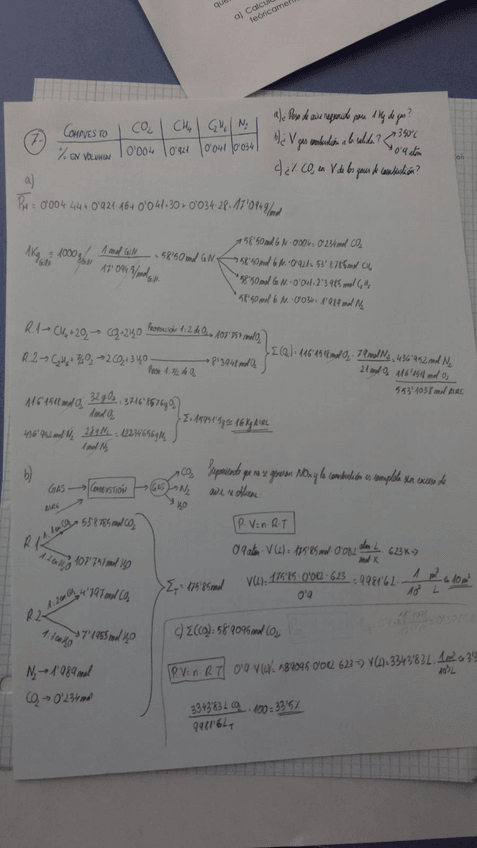 a) Calcula
teóricamente
7
COMPUESTO CO2 CH4 C2H6 N2
% EN VOLUMEN 0'004 0'921 0'041 0'034
a) ¿Peso de aire requerido para 1 Kg de gas?
b) ¿V gas combustión a la salida? 350ºC
0'9 atm
c) ¿% CO2 en V de los gases de combustión?
a)
PM = 0'004·44 + 0'921·16 + 0'041·30 + 0'034·28 = 17'094 g/mol
1Kg GN = 1000g GN · 1 mol GN / 17'094 g/mol GN = 58'50 mol GN
58'50 mol GN · 0'004 = 0'234 mol CO2
58'50 mol GN · 0'921 = 53'8785 mol CH4
58'50 mol GN · 0'041 = 2'3985 mol C2H6
58'50 mol GN · 0'034 = 1'989 mol N2
R.1 → CH4 + 2O2 → CO2 + 2H2O Proporción 1:2 de O2 → 107'757 mol O2
R.2 → C2H6 + 7/2 O2 → 2CO2 + 3H2O Prop. 1:7/2 de O2 → 8'394 mol O2
Σ(O2) = 116'151 mol O2 · 79 mol N2 / 21 mol O2 = 436'952 mol N2
116'151 mol O2
553'1038 mol AIRE
116'151 mol O2 · 32g O2 / 1 mol O2 = 3716'8576 g O2
436'952 mol N2 · 28g N2 / 1 mol N2 = 12234'656 g N2
Σ = 15951'5g ≃ 16 Kg AIRE
b)
GAS
AIRE
COMBUSTIÓN
GAS
CO2
N2
H2O
Suponiendo que no se generan NOx y la combustión es completa sin exceso de
aire, se obtiene:
R1
1:1 con CO2 53'8785 mol CO2
1:2 con H2O 107'757 mol H2O
R.2
1:2 con CO2 4'797 mol CO2
1:3 con H2O 7'1955 mol H2O
N2 → 1'989 mol
CO2 → 0'234 mol
ΣT = 175'85 mol
P.V = n.R.T
0'9 atm · V(L) = 175'85 mol · 0'082 atm·L / mol·K · 623K ⇒
V(L) = 175'85 · 0'082 · 623 / 0'9 = 9981'6 L · 1 m³ / 10³ L ≃ 10 m³
c) Σ(CO2) = 58'9095 mol CO2
P.V = n.R.T 0'9 · V(L) = 58'9095 · 0'082 · 623 ⇒ V(L) = 3343'83 L · 1 m³ / 10³ L ≃ 3'3
3343'83 L CO2 / 9981'6 LT · 100 = 33'5%